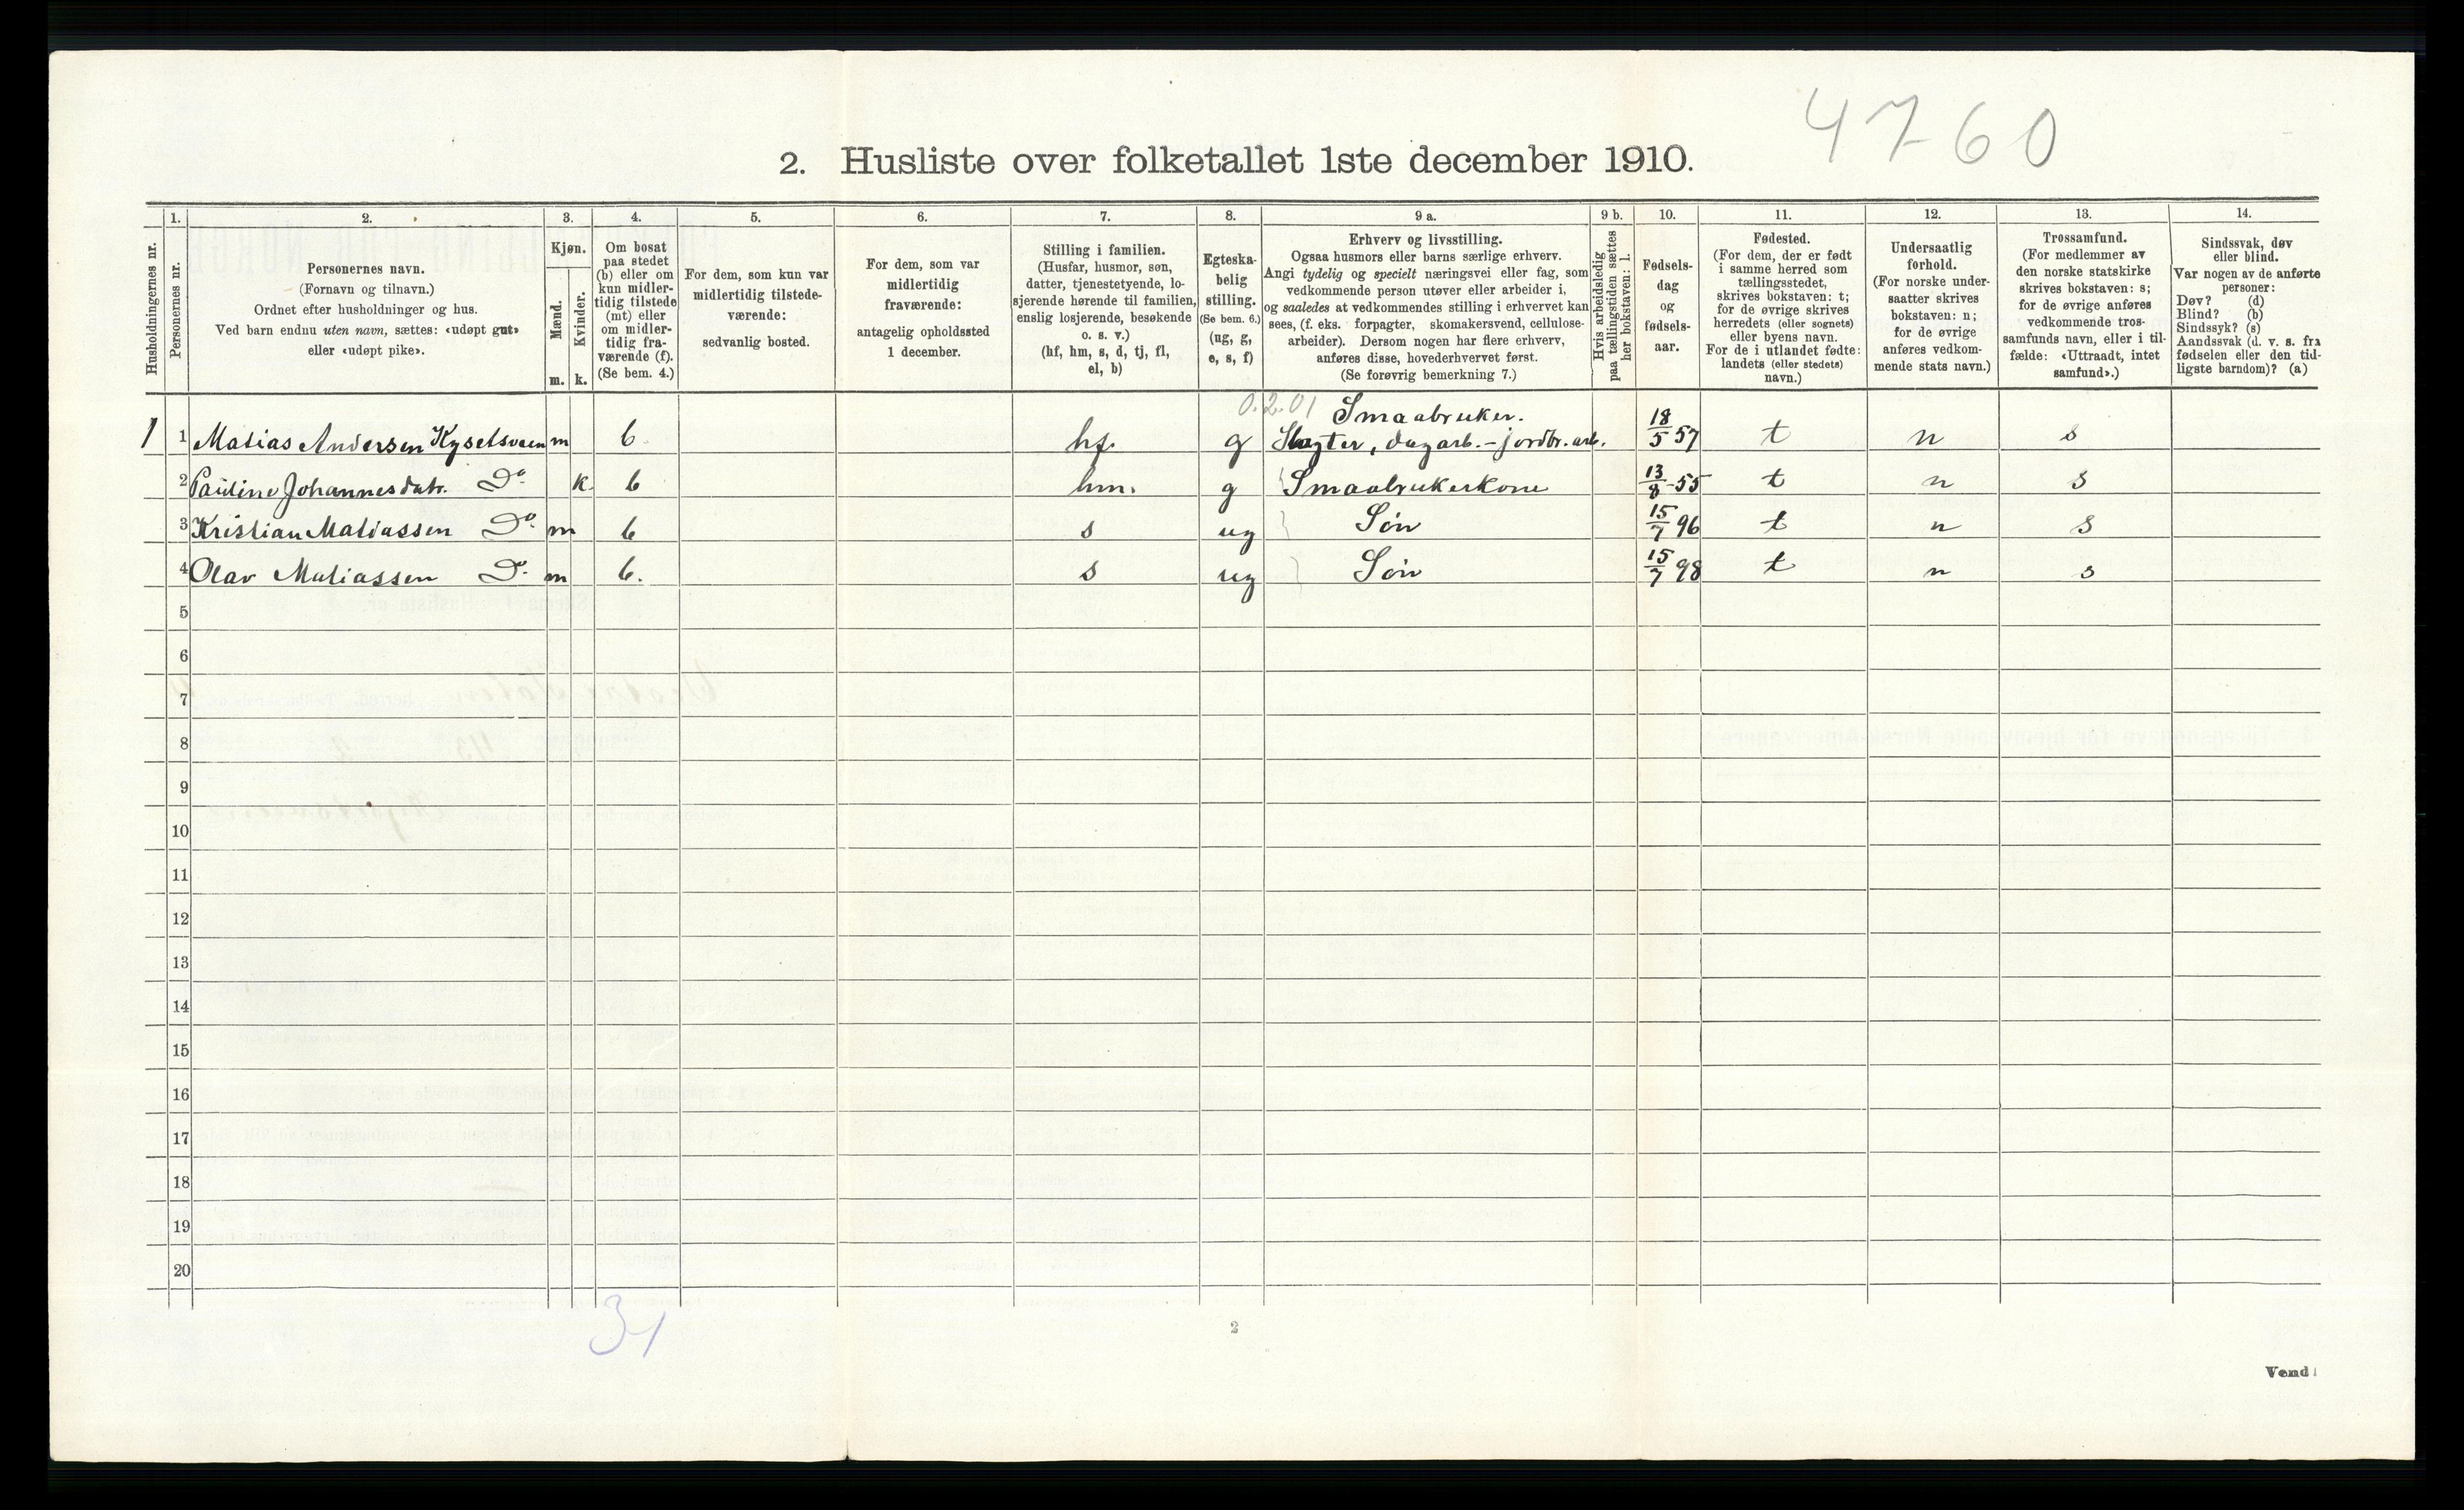 4760
2. Husliste over folketallet 1ste december 1910.
Husholdningernes nr.
1.
Personernes nr.
2.
Personernes navn.
(Fornavn og tilnavn.)
Ordnet efter husholdninger og hus.
Ved barn endnu uten navn, sættes: «udøpt gut»
eller «udøpt pike».
3.
Kjøn.
Mænd.
Kvinder.
m. k.
4.
Om bosat
paa stedet
(b) eller om
kun midler-
tidig tilstede
(mt) eller
om midler-
tidig fra-
værende (f).
(Se bem. 4.)
5.
For dem, som kun var
midlertidig tilstede-
værende:
sedvanlig bosted.
6.
For dem, som var
midlertidig
fraværende:
antagelig opholdssted
1 december.
7.
Stilling i familien.
(Husfar, husmor, søn,
datter, tjenestetyende, lo-
sjerende hørende til familien,
enslig losjerende, besøkende
o. s. v.)
(hf, hm, s, d, tj, fl,
el, b)
8.
Egteska-
belig
stilling.
(Se bem. 6.)
(ug, g,
e, s, f)
9 a.
Erhverv og livsstilling.
Ogsaa husmors eller barns særlige erhverv.
Angi tydelig og specielt næringsvei eller fag, som
vedkommende person utøver eller arbeider i,
og saaledes at vedkommendes stilling i erhvervet kan
sees, (f. eks. forpagter, skomakersvend, cellulose-
arbeider). Dersom nogen har flere erhverv,
anføres disse, hovederhvervet først.
(Se forøvrig bemerkning 7.)
9 b.
Hvis arbeidsledig
paa tællingstiden sættes
her bokstaven: l.
10.
Fødsels-
dag
og
fødsels-
aar.
11.
Fødested.
(For dem, der er født
i samme herred som
tællingsstedet,
skrives bokstaven: t;
for de øvrige skrives
herredets (eller sognets)
eller byens navn.
For de i utlandet fødte:
landets (eller stedets)
navn.)
12.
Undersaatlig
forhold.
(For norske under-
saatter skrives
bokstaven: n;
for de øvrige
anføres vedkom-
mende stats navn.)
13.
Trossamfund.
(For medlemmer av
den norske statskirke
skrives bokstaven: s;
for de øvrige anføres
vedkommende tros-
samfunds navn, eller i til-
fælde: «Uttraadt, intet
samfund».)
14.
Sindssvak, døv
eller blind.
Var nogen av de anførte
personer:
Døv? (d)
Blind? (b)
Sindssyk? (s)
Aandssvak (d. v. s. fra
fødselen eller den tid-
ligste barndom)? (a)
0.2.01 Smaabruker.
1 1 Matias Andersen Kyselsveen m b hf. g Slagter, dagarb. - jordbr. arb. 18/5 57 t n s
2 Pauline Johannesdatr. Do k. b hm. g Smaabrukerkone 13/8 - 55 t n s
3 Kristian Matiassen Do m b s ug Søn 15/7 96 t n s
4 Olav Matiassen Do m b. s ug Søn 15/7 98 t n s
5
6
7
8
9
10
11
12
13
14
15
16
17
18
19
20
31
2
Vend!